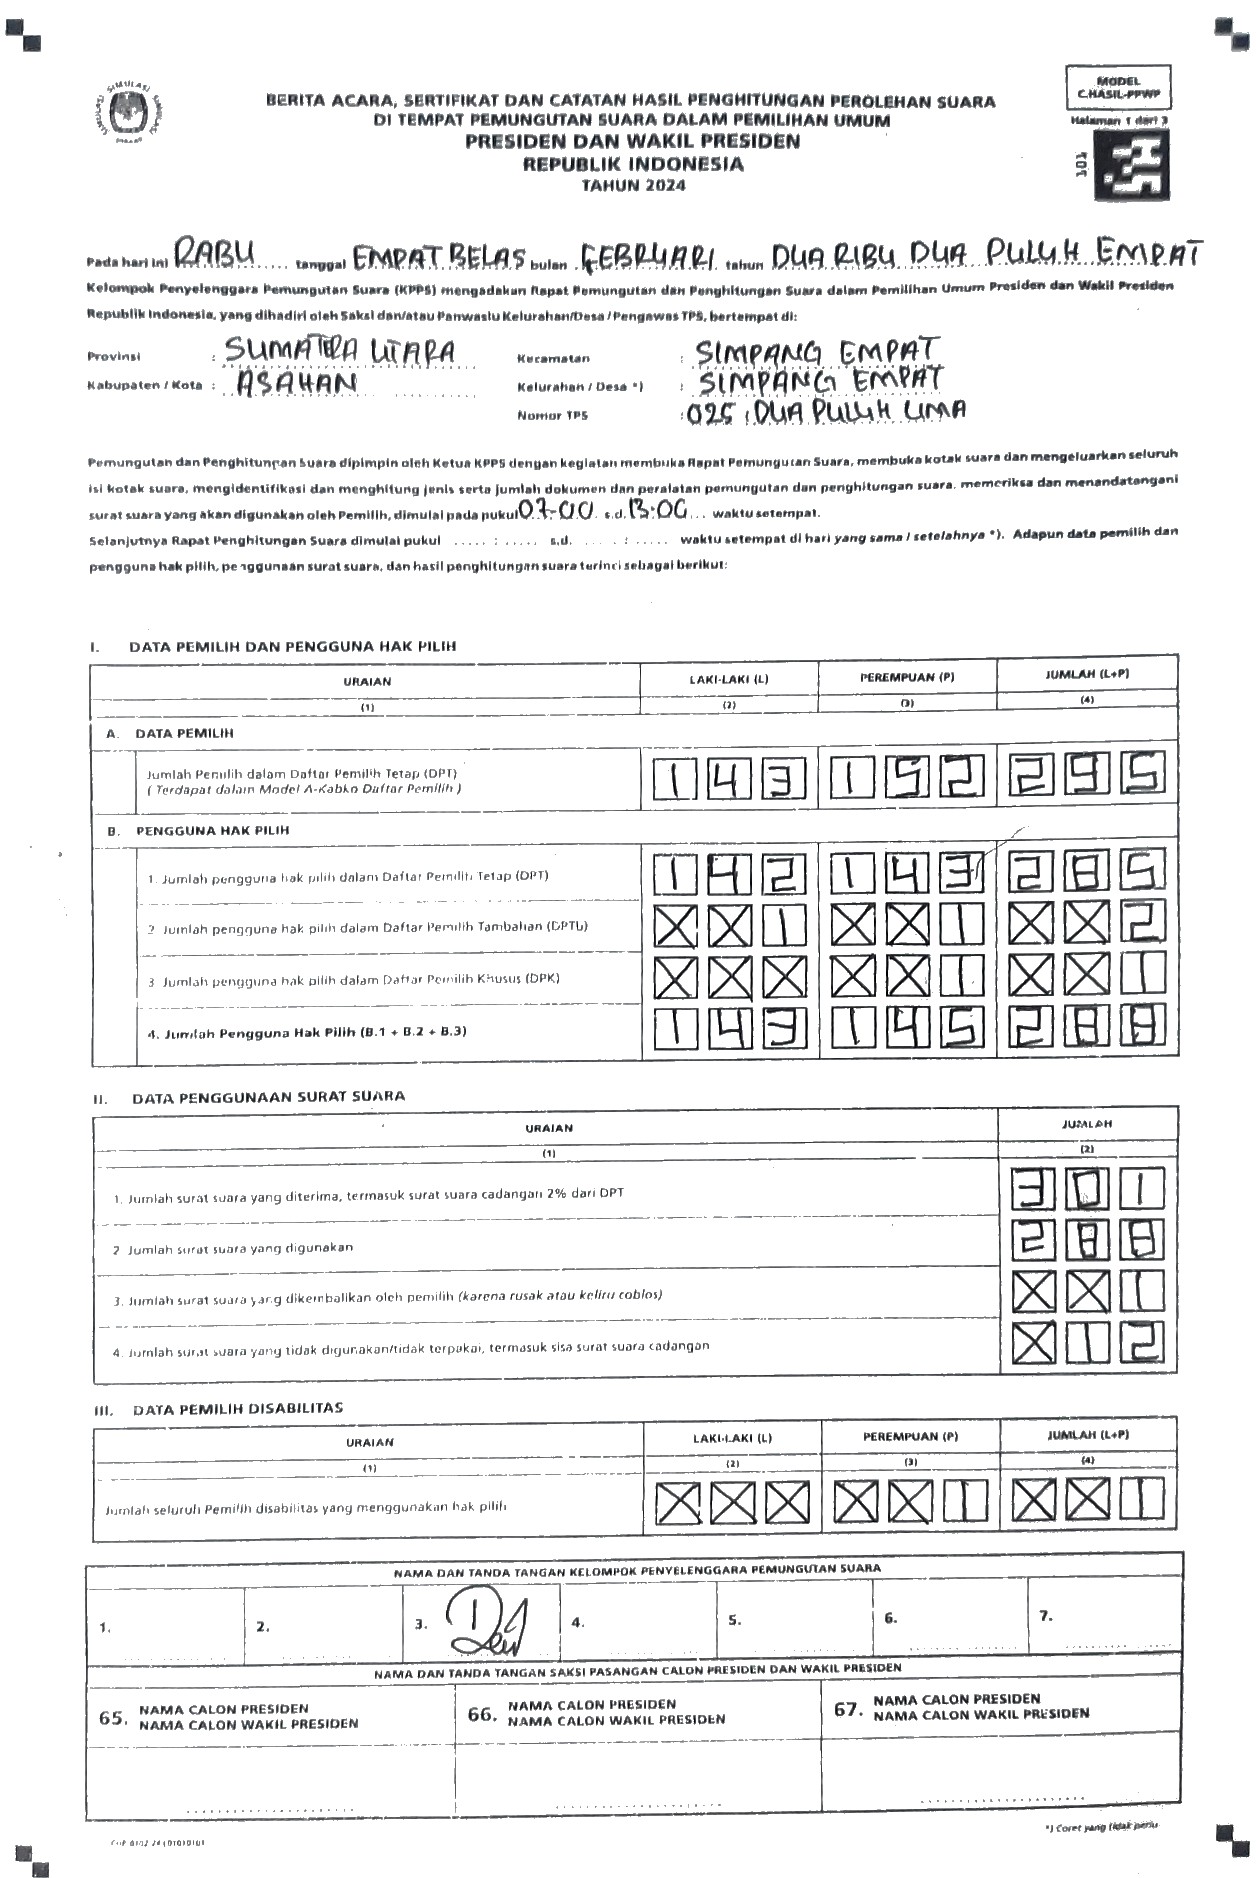 MODEL
C.HASIL-PPWP
Halaman 1 dari 3
101
SIMULASI
BERITA ACARA, SERTIFIKAT DAN CATATAN HASIL PENGHITUNGAN PEROLEHAN SUARA
DI TEMPAT PEMUNGUTAN SUARA DALAM PEMILIHAN UMUM
PRESIDEN DAN WAKIL PRESIDEN
REPUBLIK INDONESIA
TAHUN 2024
Pada hari ini RABU tanggal EMPAT BELAS bulan FEBRUARI tahun DUA RIBU DUA PULUH EMPAT
Kelompok Penyelenggara Pemungutan Suara (KPPS) mengadakan Rapat Pemungutan dan Penghitungan Suara dalam Pemilihan Umum Presiden dan Wakil Presiden
Republik Indonesia, yang dihadiri oleh Saksi dan/atau Panwaslu Kelurahan/Desa / Pengawas TPS, bertempat di:
Provinsi : SUMATERA UTARA Kecamatan : SIMPANG EMPAT
Kabupaten / Kota : ASAHAN Kelurahan / Desa *) : SIMPANG EMPAT
Nomor TPS : 025 : DUA PULUH LIMA
Pemungutan dan Penghitungan Suara dipimpin oleh Ketua KPPS dengan kegiatan membuka Rapat Pemungutan Suara, membuka kotak suara dan mengeluarkan seluruh
isi kotak suara, mengidentifikasi dan menghitung jenis serta jumlah dokumen dan peralatan pemungutan dan penghitungan suara, memeriksa dan menandatangani
surat suara yang akan digunakan oleh Pemilih, dimulai pada pukul 07.00 s.d. 13:00 waktu setempat.
Selanjutnya Rapat Penghitungan Suara dimulai pukul ..... : ..... s.d. ..... : ..... waktu setempat di hari yang sama / setelahnya *). Adapun data pemilih dan
pengguna hak pilih, penggunaan surat suara, dan hasil penghitungan suara terinci sebagai berikut:
I. DATA PEMILIH DAN PENGGUNA HAK PILIH
URAIAN LAKI-LAKI (L) PEREMPUAN (P) JUMLAH (L+P)
(1) (2) (3) (4)
A. DATA PEMILIH
Jumlah Pemilih dalam Daftar Pemilih Tetap (DPT)
( Terdapat dalam Model A-Kabko Daftar Pemilih ) 1 4 3 1 5 2 2 9 5
B. PENGGUNA HAK PILIH
1. Jumlah pengguna hak pilih dalam Daftar Pemilih Tetap (DPT) 1 4 2 1 4 3 2 8 5
2 Jumlah pengguna hak pilih dalam Daftar Pemilih Tambahan (DPTb) X X 1 X X 1 X X 2
3 Jumlah pengguna hak pilih dalam Daftar Pemilih Khusus (DPK) X X X X X 1 X X 1
4. Jumlah Pengguna Hak Pilih (B.1 + B.2 + B.3) 1 4 3 1 4 5 2 8 8
II. DATA PENGGUNAAN SURAT SUARA
URAIAN JUMLAH
(1) (2)
1. Jumlah surat suara yang diterima, termasuk surat suara cadangan 2% dari DPT 3 0 1
2 Jumlah surat suara yang digunakan 2 8 8
3. Jumlah surat suara yang dikembalikan oleh pemilih (karena rusak atau keliru coblos) X X 1
4. Jumlah surat suara yang tidak digunakan/tidak terpakai, termasuk sisa surat suara cadangan X 1 2
III. DATA PEMILIH DISABILITAS
URAIAN LAKI-LAKI (L) PEREMPUAN (P) JUMLAH (L+P)
(1) (2) (3) (4)
Jumlah seluruh Pemilih disabilitas yang menggunakan hak pilih X X X X X 1 X X 1
NAMA DAN TANDA TANGAN KELOMPOK PENYELENGGARA PEMUNGUTAN SUARA
1. 2. 3. 4. 5. 6. 7.
NAMA DAN TANDA TANGAN SAKSI PASANGAN CALON PRESIDEN DAN WAKIL PRESIDEN
65. NAMA CALON PRESIDEN
NAMA CALON WAKIL PRESIDEN
66. NAMA CALON PRESIDEN
NAMA CALON WAKIL PRESIDEN
67. NAMA CALON PRESIDEN
NAMA CALON WAKIL PRESIDEN
*) Coret yang tidak perlu